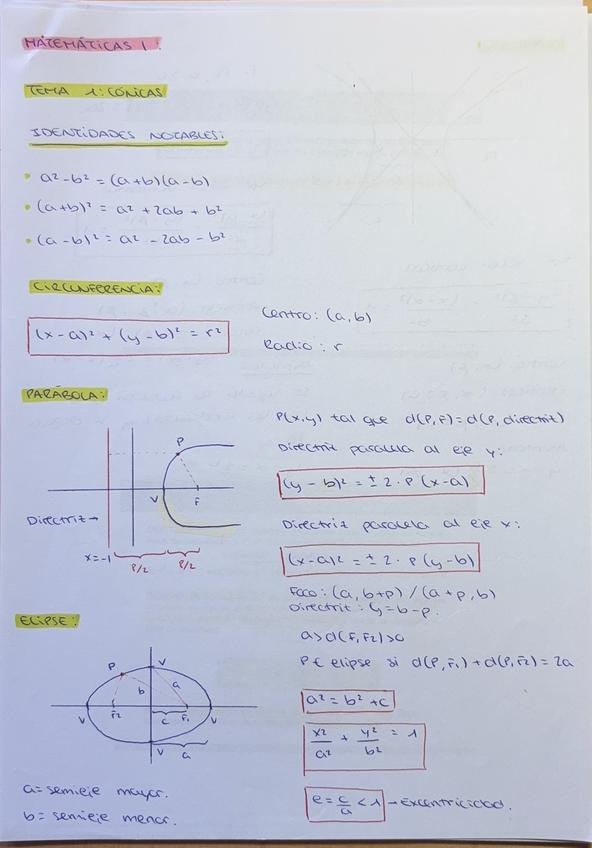 MATEMÁTICAS I:
TEMA 1: CÓNICAS
IDENTIDADES NOTABLES:
• a² - b² = (a+b)(a-b)
• (a+b)² = a² + 2ab + b²
• (a-b)² = a² - 2ab - b²
CIRCUNFERENCIA:
(x-a)² + (y-b)² = r²
Centro: (a,b)
Radio: r
PARÁBOLA:
P
V
F
Directriz →
x=-1
P/2
P/2
P(x,y) tal que d(P,F) = d(P, directriz)
Directriz paralela al eje y:
(y-b)² = ± 2·P (x-a)
Directriz paralela al eje x:
(x-a)² = ± 2·P (y-b)
Foco: (a, b+p) / (a+p, b)
Directriz: y = b-p.
ELIPSE:
P
V
b
a
V
F2
c
F1
V
V
a
a = semieje mayor.
b = semieje menor.
a > d(F1,F2) > 0
P ∈ elipse si d(P,F1) + d(P,F2) = 2a
a² = b² + c
x²/a² + y²/b² = 1
e = c/a < 1 → Excentricidad.